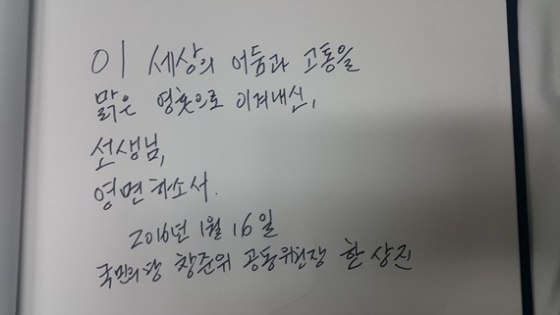 이 세상의 어둠과 고통을
맑은 영혼으로 이겨내신,
선생님,
영면하소서.
2016년 1월 16일
국민의당 창준위 공동위원장 한상진